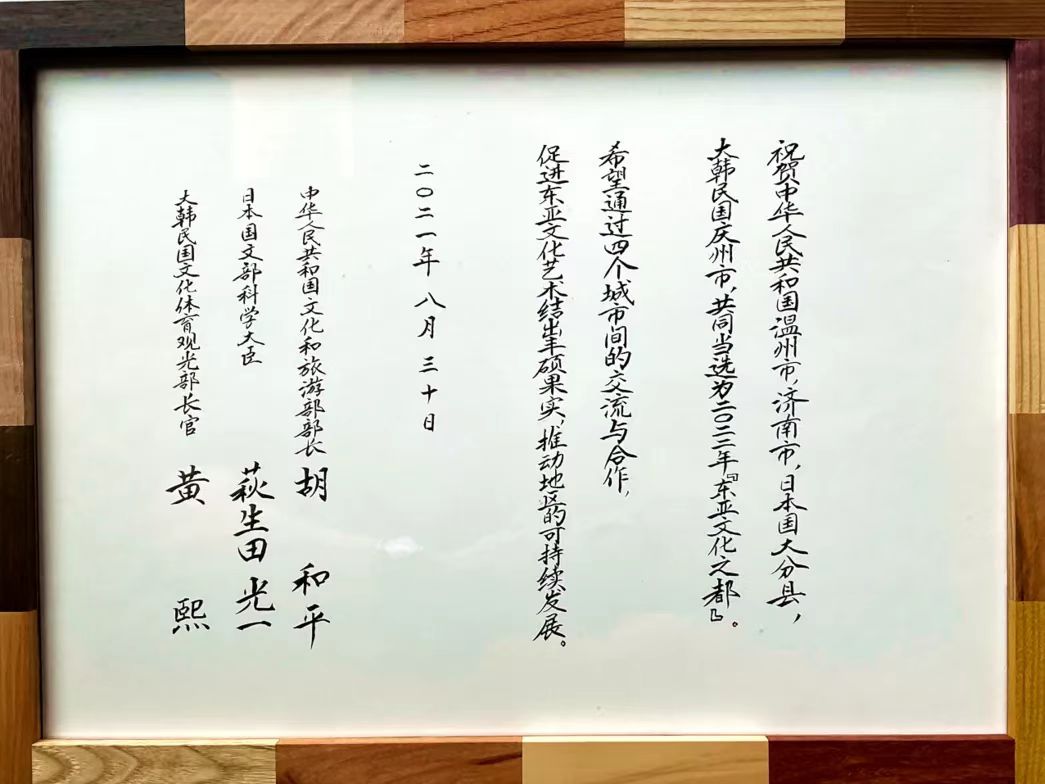 祝贺中华人民共和国温州市,济南市,日本国大分县,
大韩民国庆州市,共同当选为二〇二二年『东亚文化之都』。
希望通过四个城市间的交流与合作,
促进东亚文化艺术结出丰硕果实,推动地区的可持续发展。
二〇二一年 八月 三十日
中华人民共和国文化和旅游部部长 胡 和平
日本国文部科学大臣 萩生田 光一
大韩民国文化体育观光部长官 黄 熙